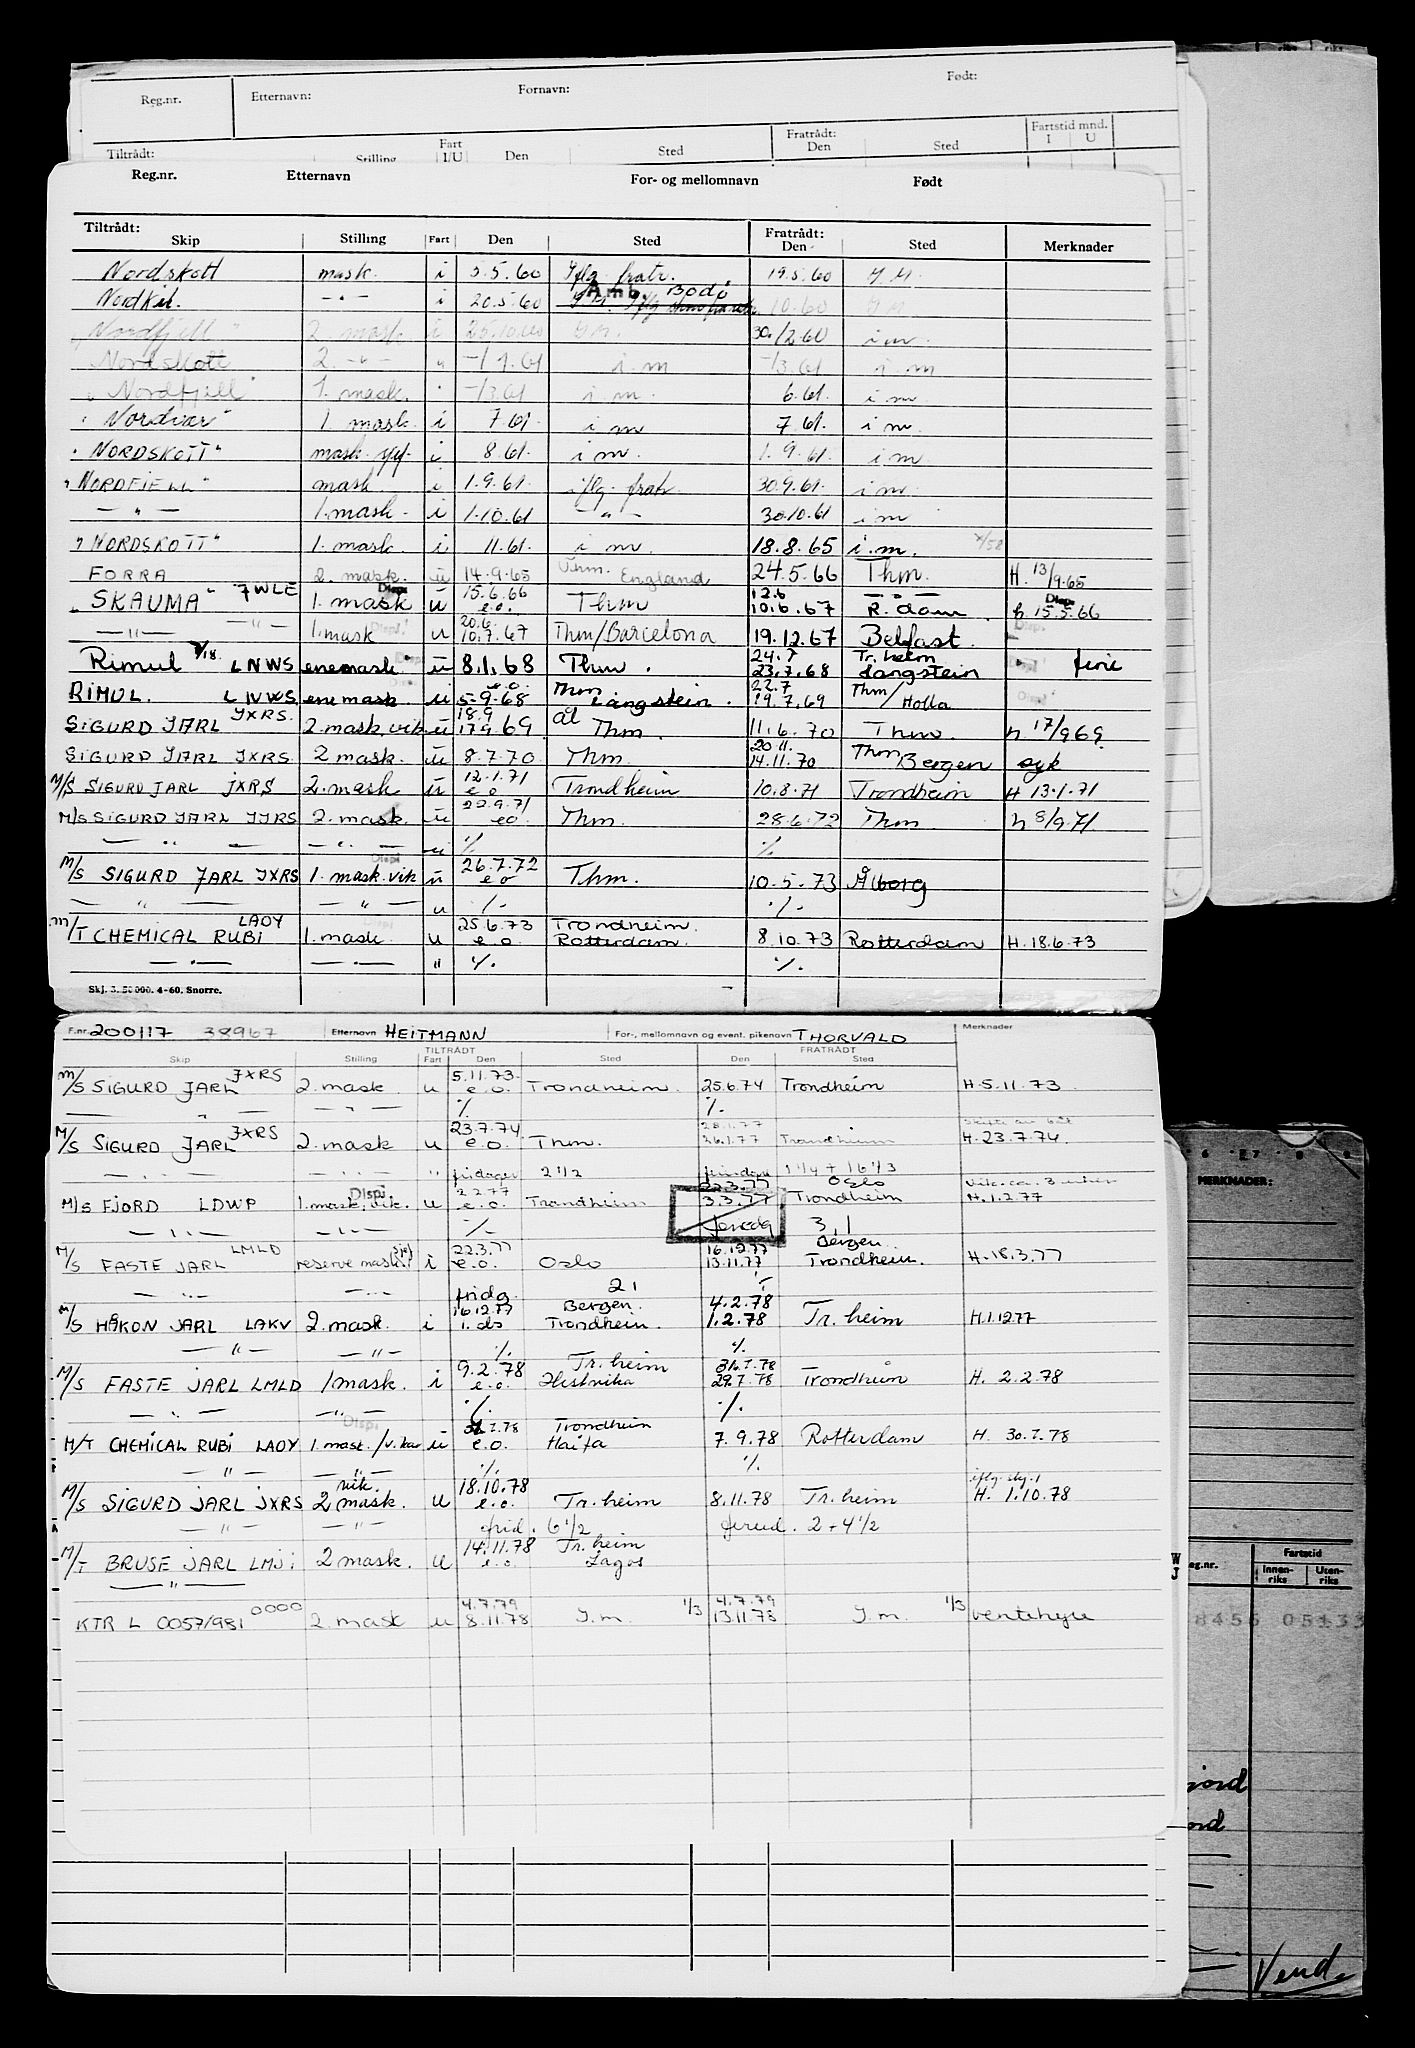 Reg.nr. Etternavn: Fornavn: Født:
Tiltrådt: Stilling Fart I/U Den Sted Fratrådt: Den Sted Fartstid mnd. I U
Reg.nr. Etternavn For- og mellomnavn Født
Tiltrådt: Skip Stilling Fart Den Sted Fratrådt: Den Sted Merknader
Nordskott mask. i 5.5.60 iflg. fratr. 19.5.60
Amb. Bodø
Nordkil. — " — i 20.5.60 10.60
Nordfjell 2. mask. i 25.10.60 30/12.60 i.m.
Nordskott 2. — " — " -/1.61 i.m -/3.61 i.m
"Nordfjell" 1. mask. i -/3.61 i.m. 6.61. i.m.
"Nordvar" 1 mask. i 7.61. i m 7.61. i m.
"NORDSKOTT" i 8.61. i m. 1.9.61. i m.
"NORDFJELL" mask i 1.9.61. iflg. fratr. 30.9.61. i m.
— " — 1.mask. i 1.10.61 — " — 30.10.61 i m
"NORDSKOTT" 1. mask. i. 11.61. i m. 18.8.65 i.m.
FORRA 2. mask. u 14.9.65 England 24.5.66 Thm. H. 13/9.65
"SKAUMA" JWLE 1. mask Disp. u 15.6.66 e.o. Thm 12.6 10.6.67 — " — R.dam 15.5.66 Disp.
— " — — " — 1.mask Disp! u 20.6. 10.7.67 Thm/Barcelona 19.12.67 Belfast.
Rimul LNWS enemask u 8.1.68 Thm. 24.7 23.7.68 Tr.heim Langstein ferie
RIMUL. LNWS enemask. u e.o. 5-9-68 Thm Langstein. 22.7 19.7.69 Thm/Holla
SIGURD JARL JXRS. 2.mask.vik u 18.9 17.9.69 Thm. 11.6.70 Thm. H 17/9 69.
SIGURD JARL JXRS 2 mask. u 8.7.70. Thm. 20.11. 14.11.70 Thm Bergen syk
M/S SIGURD JARL JXRS 2. mask u 12.1.71 e o Trondheim 10.8.71 Trondheim H 13.1.71
M/S SIGURD JARL 2. mask. u 22.9.71 eo Thm. 28.6.72 Thm. H 8/9.71.
— " — — " — u ./. ./.
M/S SIGURD JARL JXRS 1. mask.vik Disp. u 26.7.72 e o Thm. 10.5.73 Ålborg
— " — — " — u ./. ./.
M/T CHEMICAL RUBI LAOY 1.mask. u 25.6.73 e.o. Trondheim. Rotterdam. 8.10.73 Rotterdam H. 18.6.73
— " — — " — " ./. ./.
Skj. 3. 50 000. 4-60. Snorre.
F.nr. 200117 38967 Etternavn HEITMANN For-, mellomnavn og event. pikenavn THORVALD Merknader
TILTRÅDT FRATRÅDT
Skip Stilling Fart Den Sted Den Sted
M/S SIGURD JARL JXRS 2. mask u 5.11.73. e.o. Trondheim. 25.6.74 Trondheim H. 5.11.73.
— " — — " — ./. ./.
M/S SIGURD JARL JXRS 2. mask u 23.7.74 e.o. Thm. 28.1.77 26.1.77 Trondheim H. 23.7.74.
— " — — " — " fridager 2 1/2 1 1/4 + 16 1/3
M/S FJORD LDWP 1.mask. vik. Disp. u 2.2.77 e.o. Trondheim 22.3.77 3.3.77 Oslo Trondheim H. 1.2.77
— " — — " — ./. 3,1
M/S FASTE JARL LMLD reserve mask. i 22.3.77 e.o. Oslo 16.12.77 13.11.77 Bergen. Trondheim. H. 18.3.77
— " — — " — fridg. 21 ./.
M/S HÅKON JARL LAKV 2. mask. i 16.12.77 1. ds Bergen. Trondheim. 4.2.78 1.2.78 Tr.heim H.1.12.77
— " — — " — ./. ./.
M/S FASTE JARL LMLD 1mask. i 9.2.78 e.o. Tr.heim 31.7.78 29.7.78 Trondheim H. 2.2.78
— " — — " — ./. ./.
M/T CHEMICAL RUBI LAOY 1.mask./vikar Disp. u 31.7.78 e.o. Trondheim Haifa 7.9.78 Rotterdam H. 30.7.78
— " — — " — ./. ./.
M/S SIGURD JARL JXRS 2 mask. vik. u 18.10.78 e.o. Tr.heim 8.11.78 Tr.heim H. 1.10.78
— " — — " — frid. 6 1/2 2 + 4 1/2
M/T BRUSE JARL LMJI 2 mask. u 14.11.78 e.o. Tr.heim Lagos
— " —
KTR L 0057/981 0000 2. mask u 4.7.79 8.11.78 I.m. 1/3 4.7.79 13.11.78 I.m. 1/3 ventehyre
6 7 8 9
MERKNADER:
W
J
eg.nr. Fartstid
Innen-riks Uten-riks
8456 05133
jord
ord
Vend.